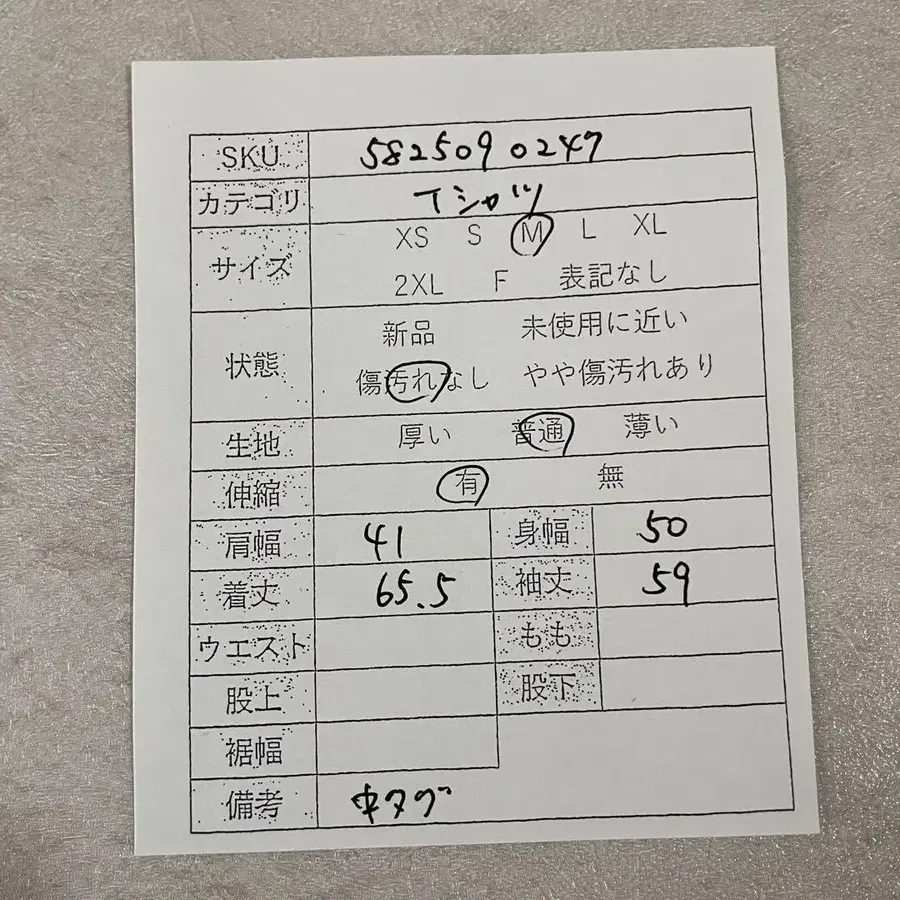 SKU 5825090247
カテゴリ Tシャツ
サイズ XS S M L XL
2XL F 表記なし
状態 新品 未使用に近い
傷汚れなし やや傷汚れあり
生地 厚い 普通 薄い
伸縮 有 無
肩幅 41 身幅 50
着丈 65.5 袖丈 59
ウエスト もも
股上 股下
裾幅
備考 中タグ